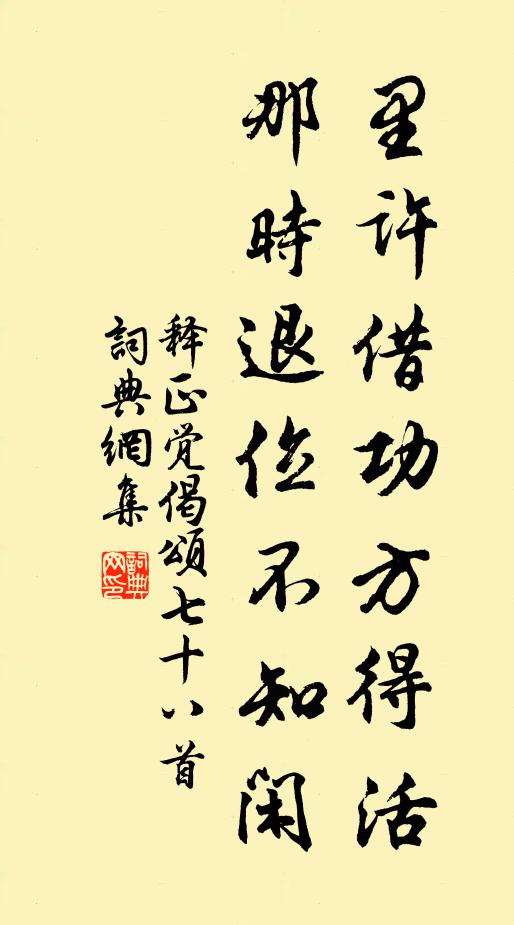 里許借功方得活
那時退位不知閑
释正觉偈頌七十八首
詞典網集
詞典网印